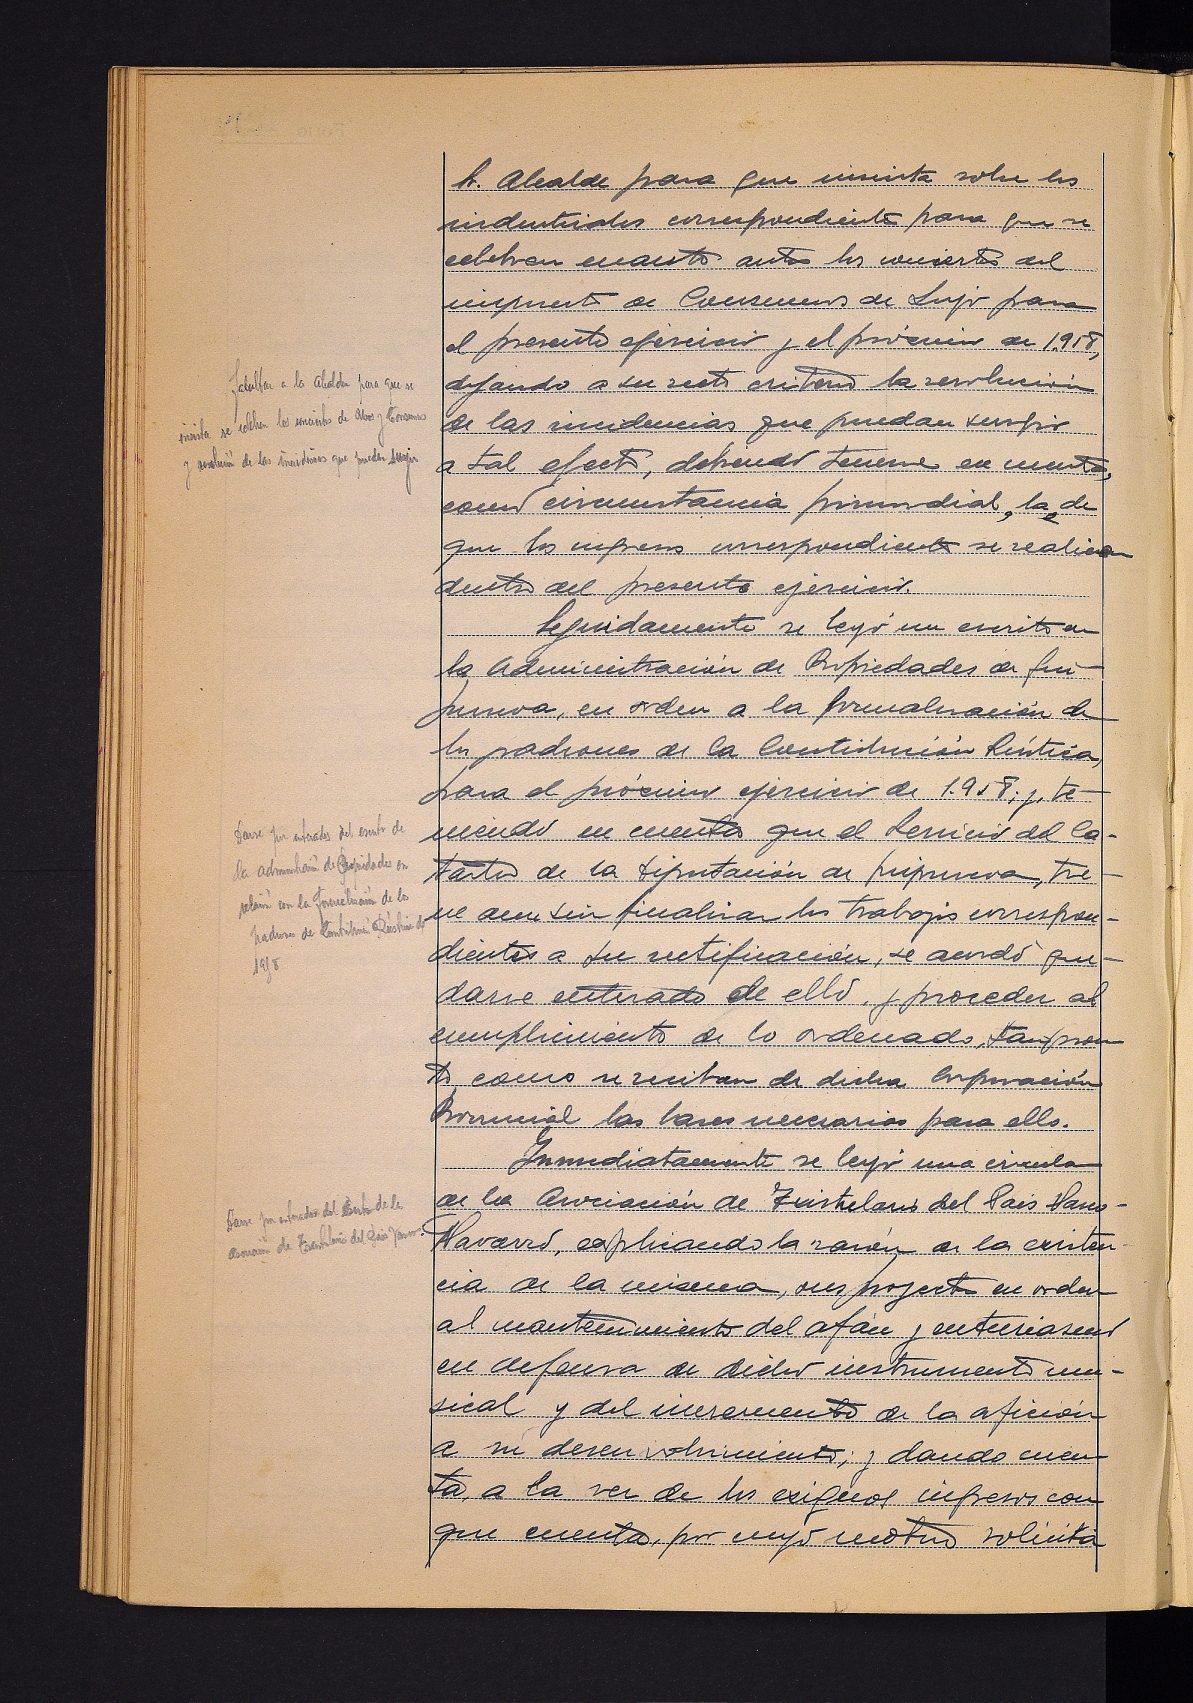 Sr. Alcalde para que insista sobre los
industriales correspondientes para que se
celebren cuanto antes los conciertos del
impuesto de Consumos de Lujo para
el presente ejercicio y el próximo de 1.958,
dejando a su recto criterio la resolución
de las incidencias que puedan surgir
a tal efecto, debiendo tenerse en cuenta,
como circunstancia primordial, la de
que los ingresos correspondientes se realicen
dentro del presente ejercicio.
Seguidamente se leyó un escrito de
la Administración de Propiedades de Gui-
puzcoa, en orden a la formalización de
los padrones de la Contribución Rústica,
para el próximo ejercicio de 1.958; y, te-
niendo en cuenta que el Servicio del Ca-
tastro de la Diputación de Guipuzcoa, tie-
ne aun sin finalizar los trabajos correspon-
dientes a su rectificación, se acordó que-
darse enterado de ello, y proceder al
cumplimiento de lo ordenado, tan pron-
to como se reciban de dicha Corporación
Provincial las bases necesarias para ello.
Inmediatamente se leyó una circular
de la Asociación de Txistularis del Pais Vasco-
Navarro, explicando la razón de la existen-
cia de la misma, sus proyectos en orden
al mantenimiento del afán y entusiasmo
en defensa de dicho instrumento mu-
sical y del incremento de la afición
a su desenvolvimiento; y dando cuen-
ta, a la vez de los exiguos ingresos con
que cuenta, por cuyo motivo solicita
facultar a la Alcaldia para que se
insista se celebren los conciertos de y Consumos
y resolución de las incidencias que puedan surgir
Darse por enterados del escrito de
la administración de Propiedades en
relación con la formalización de los
padrones de Contribución Rústica de
1958
Darse por enterados del de la
Asociación de Txistularis del Pais Vasco-